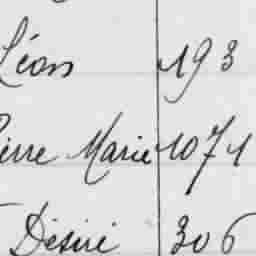 Léon 193
Pierre Marie 1071
Désiré 306